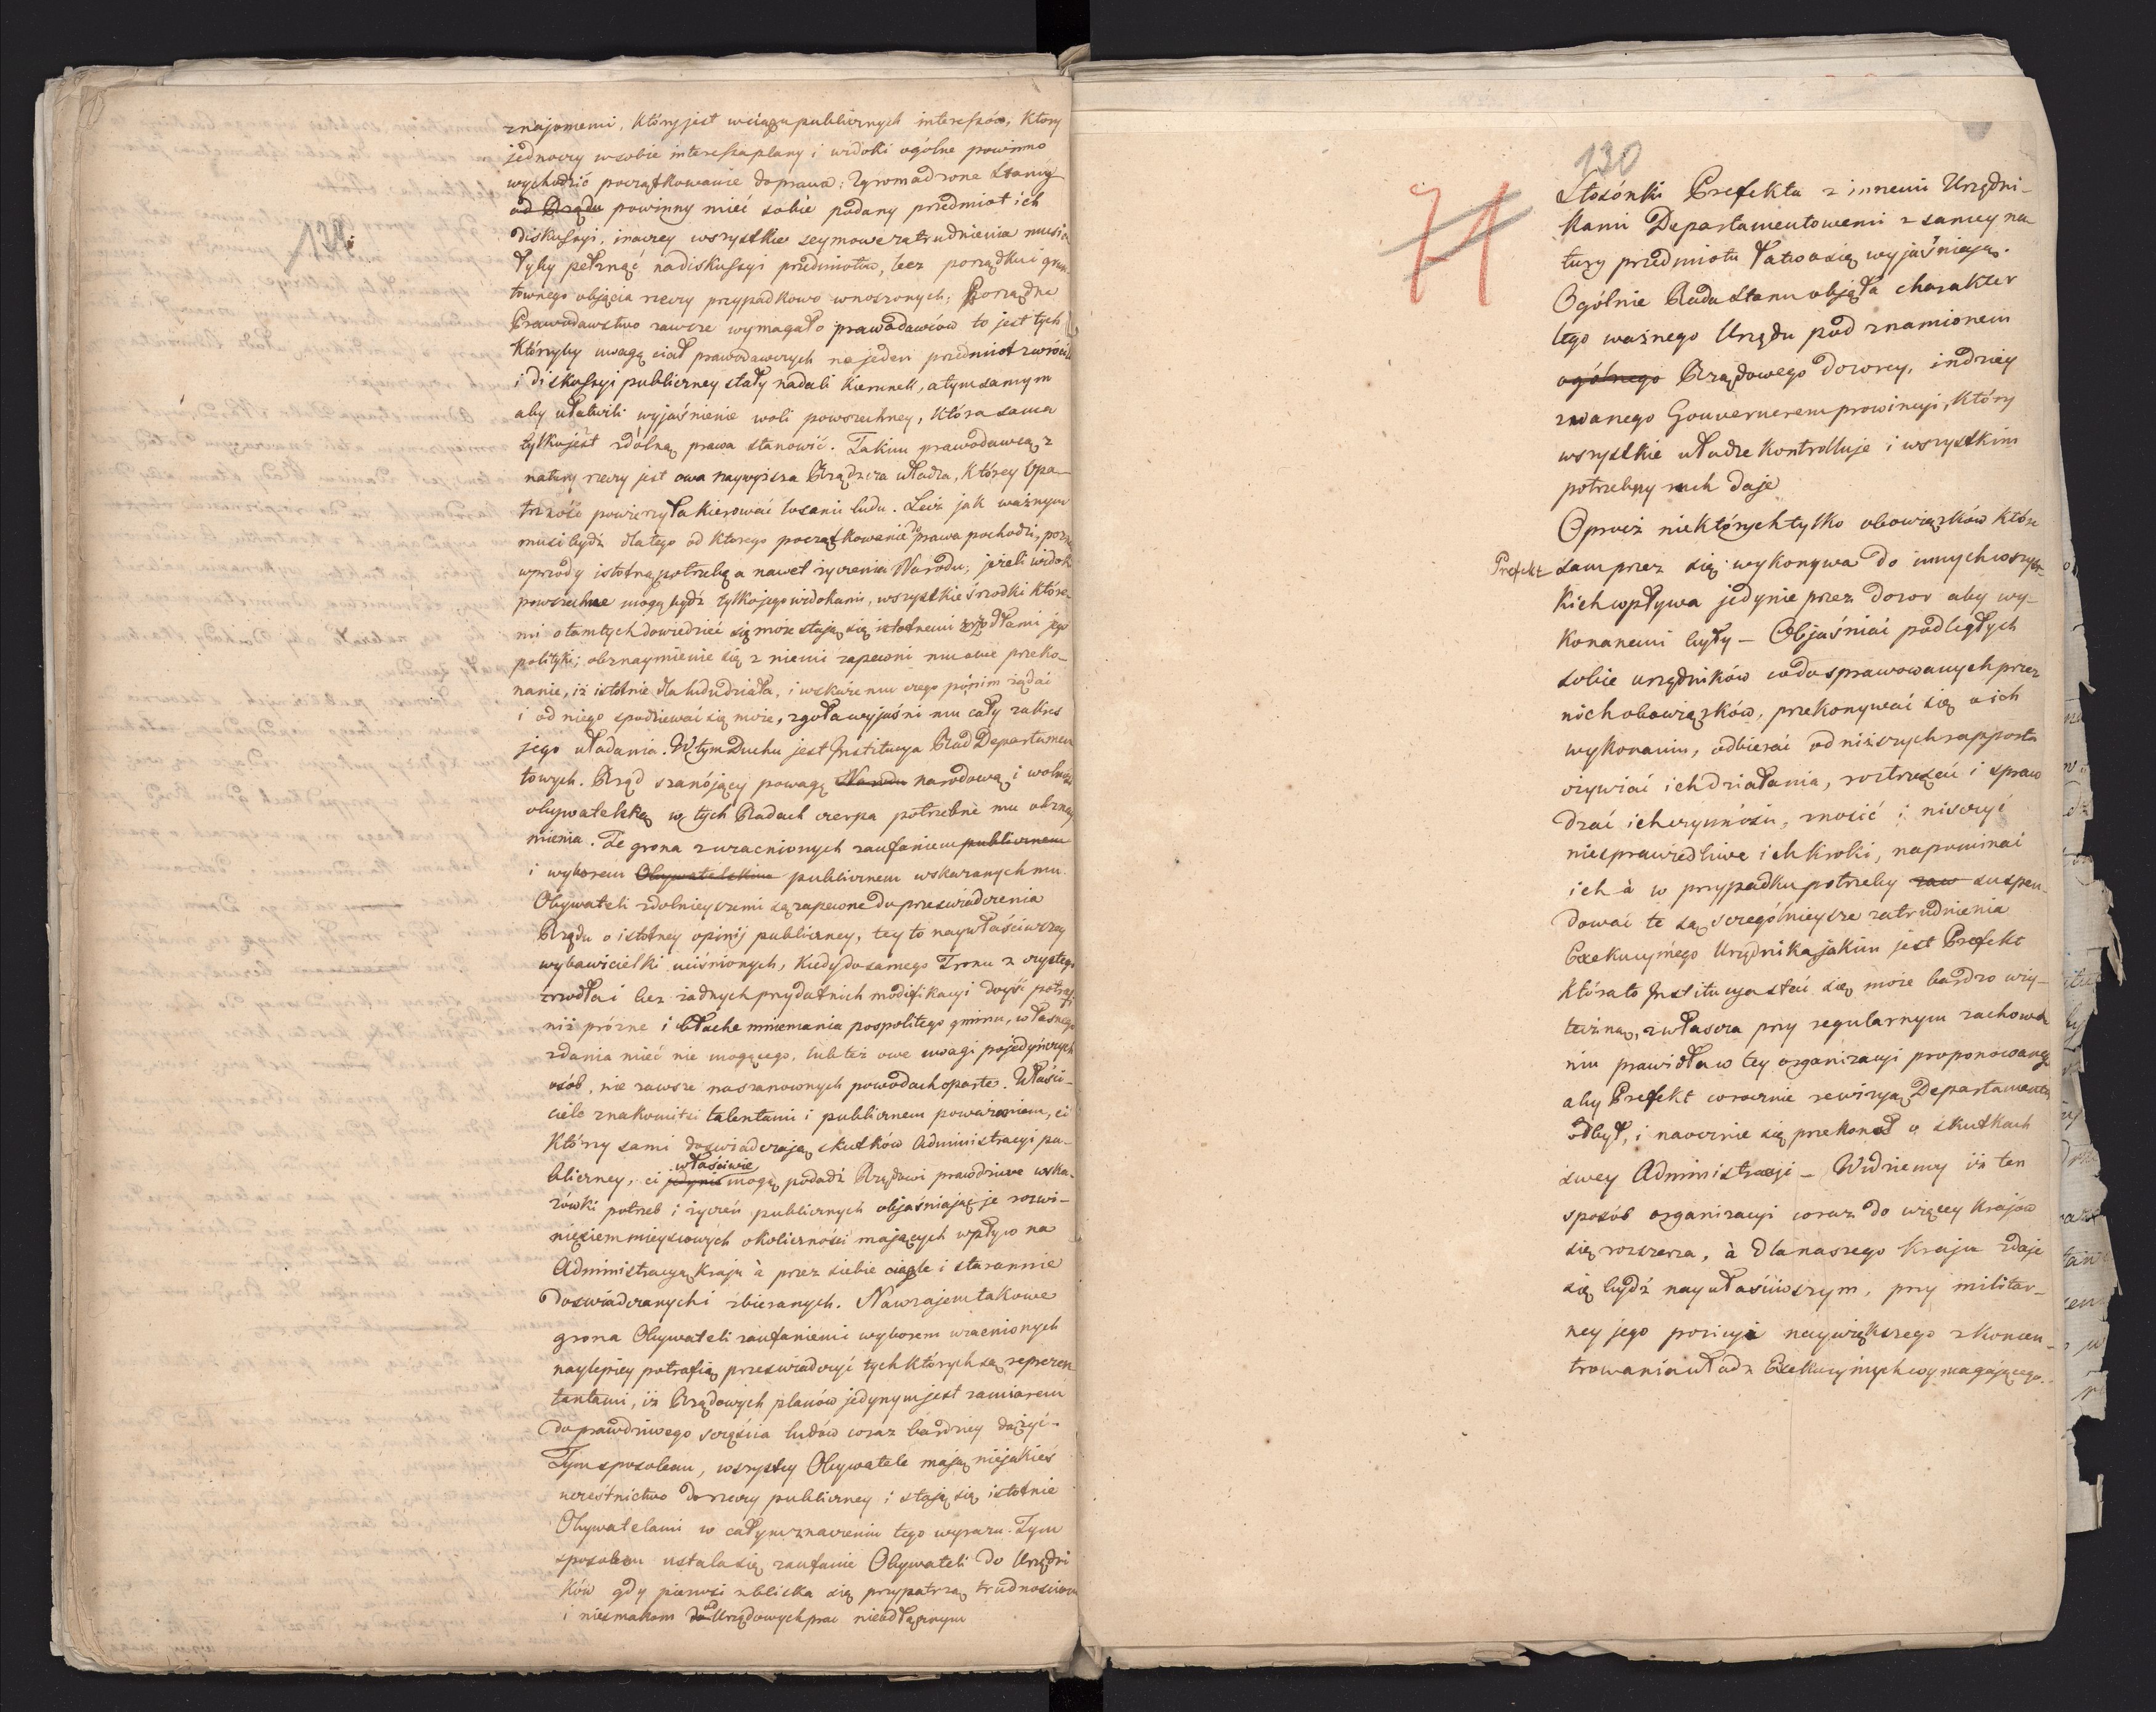 131.
znajomemi, który jest w ciągu publicznych interessów, który
jednoczy w sobie interessa plany i widoki ogólne powinno
wychodzić początkowanie do prawa; Zgromadzone Stany
od Rządu powinny mieć sobie podany przedmiot ich
diskussyi, inaczey wszystkie seymowe zatrudnienia musia
łyby pełznąć na diskussyi przedmiotów, bez porządku i grun
townego objęcia rzeczy przypadkowo wnoszonych; Porządne
Prawodawstwo zawsze wymagało prawodawców to jest tych
którzyby uwagę ciał prawodawczych na jeden przedmiot zwrócili
i diskussyi publiczney stały nadali kierunek, a tym samym
aby ułatwili wyjaśnienie woli powszechney, która sama
tylko jest zdolną prawa stanowić. Takim prawodawcą z
natury rzeczy jest owa naywyższa Rządcza władza, którey Opa-
trzność powierzyła kierować losami ludu. Lecz jak ważnym
musi bydź dla tego od którego początkowanie do prawa pochodzi, pozna
wprzódy istotną potrzebę a nawet życzenia Narodu; jeżeli widoki
powszechne mogą bydź tylko jego widokami, wszystkie środki które-
mi o tamtych dowiedzieć się może stają się istotnemi źrzódłami jego
polityki; obznaymienie się z niemi zapewni mu owe przeko-
nanie, iż istotnie dla ludu działa, i wskaże mu czego po nim żądać
i od niego spodziewać się może, zgoła wyjaśni mu cały zakres
jego władania. W tym Duchu jest Institucya Rad Departamen
towych. Rząd szanójący powagę Narodu narodową i wolność
obywatelską w tych Radach czerpa potrzebne mu obznay
mienia. Te grona zwracnionych zaufaniem publicznem
i wyborem Obywatelskim publicznem wskazanych mu
Obywateli zdolnieyszemi są zapewne do przeswiadczenia
Rządu o istotney opinij publiczney, tey to naywłaściwszey
wybawicielki uciśnionych, kiedy do samego Tronu z czystego
źrzódła i bez żadnych przydatnich modifikacyi doyść potrafi
niż próżne i błache mniemania pospolitego gminu, własnego
zdania mieć nie mogącego, lub też owe uwagi pojedyńczych
osób, nie zawsze na szanownych powodach oparte. Właści-
ciele znakomitsi talentami i publicznem poważaniem, ci
którzy sami doswiadczają skutków Administracyi pu-
bliczney, ci jedynie właściwie mogą podadź Rządowi prawdziwe wska-
zówki potrzeb i życzeń publicznych objaśniając je rozwi-
nięciem mieyscowych okoliczności mających wpływ na
Administracyą kraju à przez siebie ciągle i starannie
doswiadczanych i zbieranych. Nawzajem takowe
grona Obywateli zaufaniem i wyborem wzacnionych
naylepiey potrafią przeswiadczyć tych których są reprezen
tantami, iż Rządowych planów jedynym jest zamiarem
do prawdziwego szczęścia ludów coraz bardziey dążyć.
Tym sposobem, wszyscy Obywatele mają niejakieś
uczestnictwo do rzeczy publiczney i stają się istotnie
Obywatelami w całym znaczeniu tego wyrazu. Tym
sposobem ustala się zaufanie Obywateli do Urzędni
ków gdy pierwsi zbliska się przypatrzą trudnościom
i niesmakom do od Urzędowych prac nieodłącznym
130
71
Stosónki Prefekta z innemi Urzędni-
kami Departamentowemi z samey na
tury przedmiotu łatwo się wyjaśniają.
Ogólnie Rada Stanu objęła charakter
tego ważnego Urzędu pod znamionem
ogólnego Rządowego dozorcy, indziey
zwanego Gouvernerem prowincyi, który
wszystkie władze kontrolluje i wszystkim
potrzebny ruch daje
Oprócz niektórych tylko obowiązków które
Prefekt sam przez się wykonywa do innych wszyst-
kich wpływa jedynie przez dozor aby wy-
konanemi były – Objaśniać podległych
sobie urzędników co do sprawowanych przez
nich obowiązków, przekonywać się o ich
wykonaniu, odbierać od niższych rapporta
ożywiać ich działania, roztrząsać i spraw
dzać ich czynności, znosić i niszczyć
niesprawiedliwe ich kroki, napominać
ich à w przypadku potrzeby zaw suspen-
dować te są szczególnieysze zatrudnienia
Exekucyinego Urzędnika jakim jest Prefekt
która to Institucya stać się może bardzo uży-
teczną, zwłaszcza przy regularnym zachowa
niu prawideł w tey organizacyi proponowaney
aby Prefekt corocznie rewizyą Departamentu
odbył, i naocznie się przekonał o skutkach
swey Administracyi – Widziemy iż ten
sposób organizacyi coraz do więcey krajów
się rozszerza, à dla naszego kraju zdaje
się bydź naywłaściwszym, przy militar-
ney jego pozicyi naywiększego zkoncen-
trowania władz Exekucyinych wymagającego.